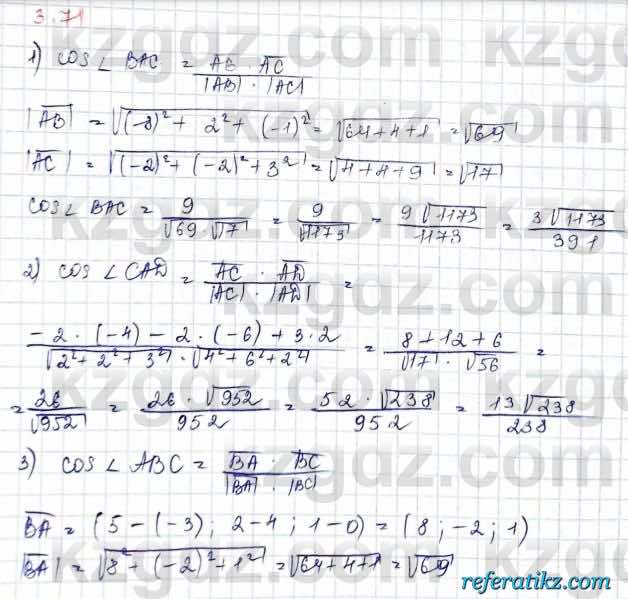 3.71
1) cos∠BAC = (AB · AC) / (|AB| · |AC|)
|AB| = √((-8)² + 2² + (-1)²) = √(64+4+1) = √69
|AC| = √((-2)² + (-2)² + 3²) = √(4+4+9) = √17
cos∠BAC = 9 / (√69 · √17) = 9 / √1173 = 9√1173 / 1173 = 3√1173 / 391
2) cos∠CAD = (AC · AD) / (|AC| · |AD|) =
(-2 · (-4) - 2 · (-6) + 3 · 2) / (√(2²+2²+3²) · √(4²+6²+2²)) = (8+12+6) / (√17 · √56) =
= 26 / √952 = 26 · √952 / 952 = 52 · √238 / 952 = 13√238 / 238
3) cos∠ABC = (BA · BC) / (|BA| · |BC|)
BA = (5-(-3); 2-4; 1-0) = (8; -2; 1)
|BA| = √(8² + (-2)² + 1²) = √(64+4+1) = √69
kzgdz.com
referatikz.com